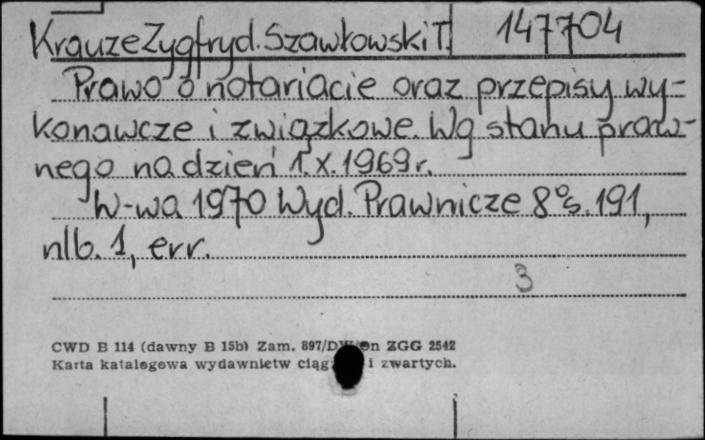 Krauze Zygfryd. Szawłowski T. 147704
Prawo o notariacie oraz przepisy wy-
konawcze i związkowe. Wg stanu praw-
nego na dzień 1.X.1969 r.
W-wa 1970 Wyd. Prawnicze 8° s. 191,
nlb. 1, err.
3
CWD B 114 (dawny B 15b) Zam. 897/ ZGG 2542
Karta katalogowa wydawnictw i zwartych.